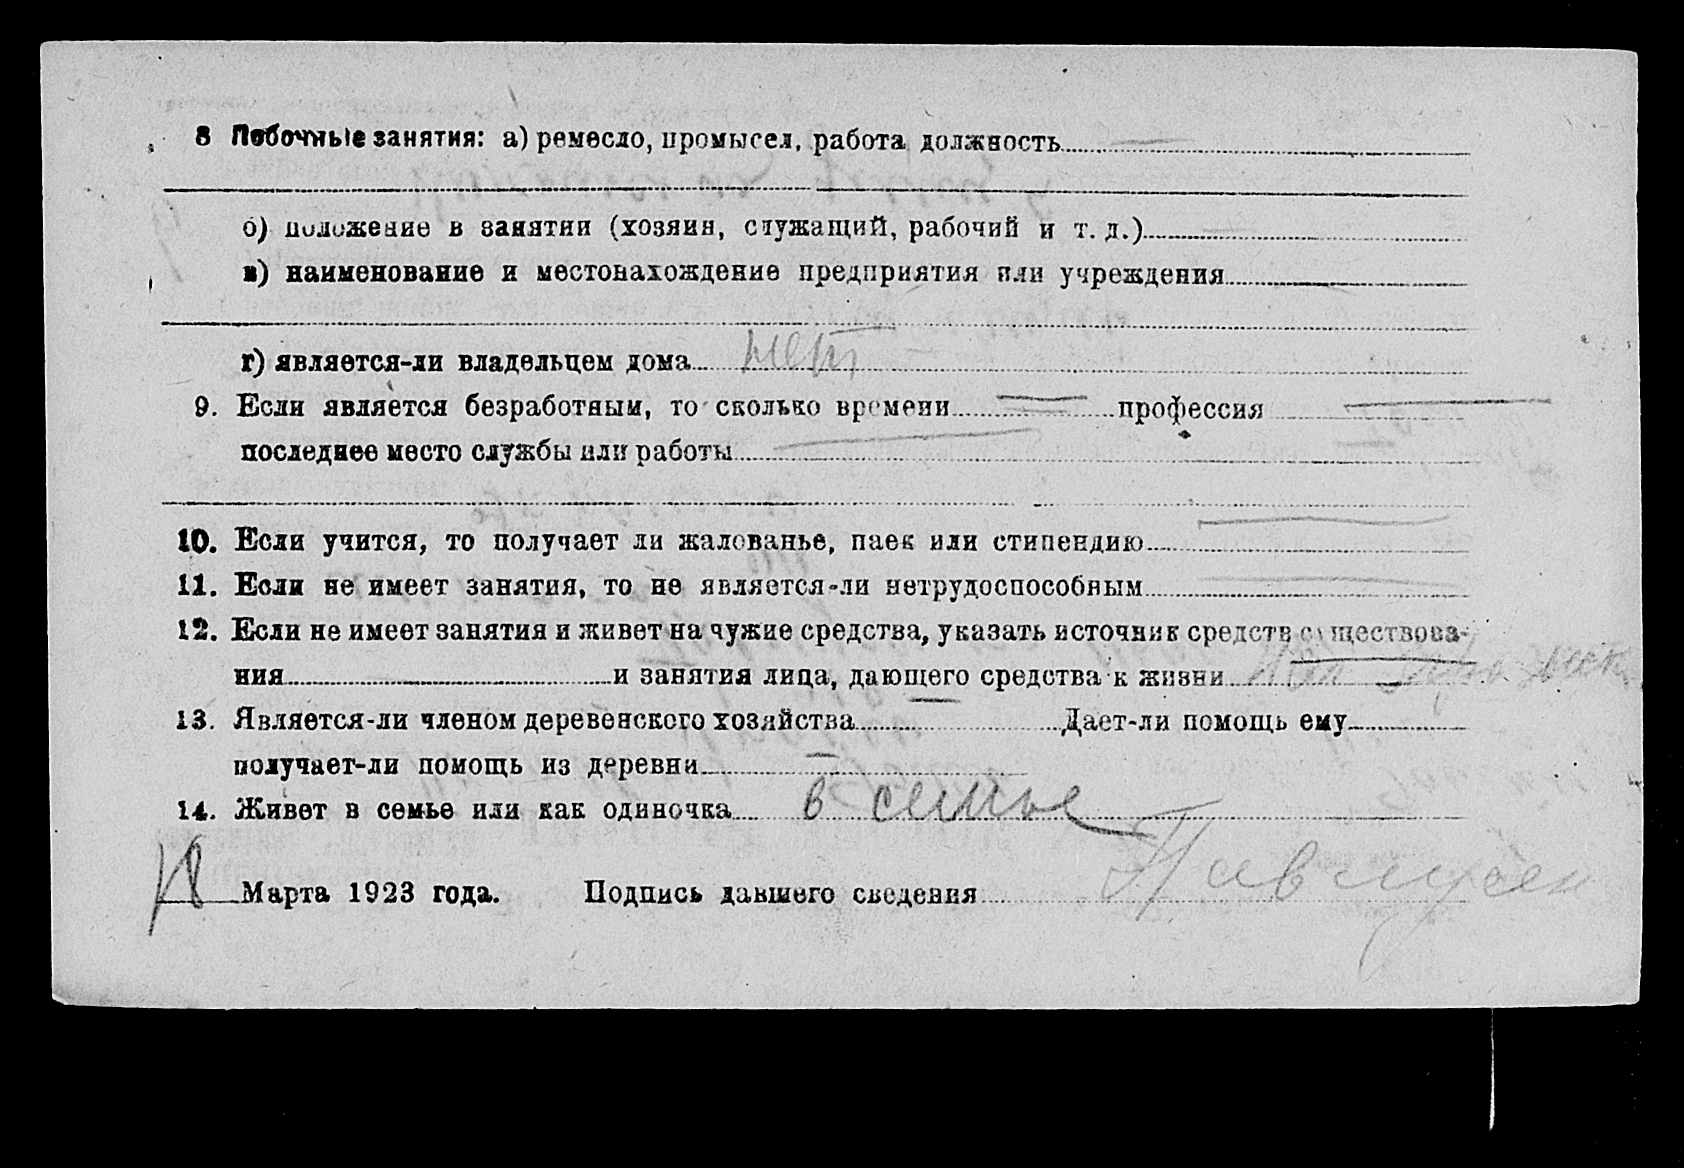 8 Побочные занятия: а) ремесло, промысел, работа должность —
б) положение в занятии (хозяин, служащий, рабочий и т. д.) —
в) наименование и местонахождение предприятия или учреждения
г) является-ли владельцем дома нет
9. Если является безработным, то сколько времени — профессия —
последнее место службы или работы —
10. Если учится, то получает ли жалованье, паек или стипендию —
11. Если не имеет занятия, то не является-ли нетрудоспособным —
12. Если не имеет занятия и живет на чужие средства, указать источник средств существова-
ния и занятия лица, дающего средства к жизни
13. Является-ли членом деревенского хозяйства — Дает-ли помощь ему
получает-ли помощь из деревни —
14. Живет в семье или как одиночка в семье
18 Марта 1923 года. Подпись давшего сведения